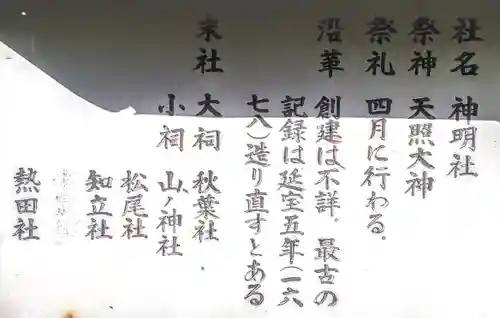 社名 神明社
祭神 天照大神
祭礼 四月に行わる.
沿革 創建は不詳. 最古の
記録は延宝五年(一六
七八)造り直すとある
末社 大祠 秋葉社
小祠 山ノ神社
松尾社
知立社
熱田社